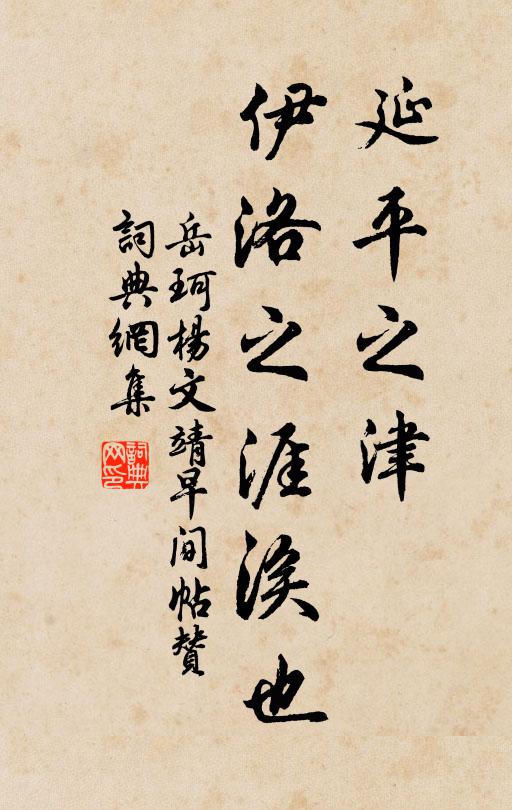 延平之津
伊洛之涯涘也
岳珂楊文靖早間帖贊
詞典網集
詞典网印